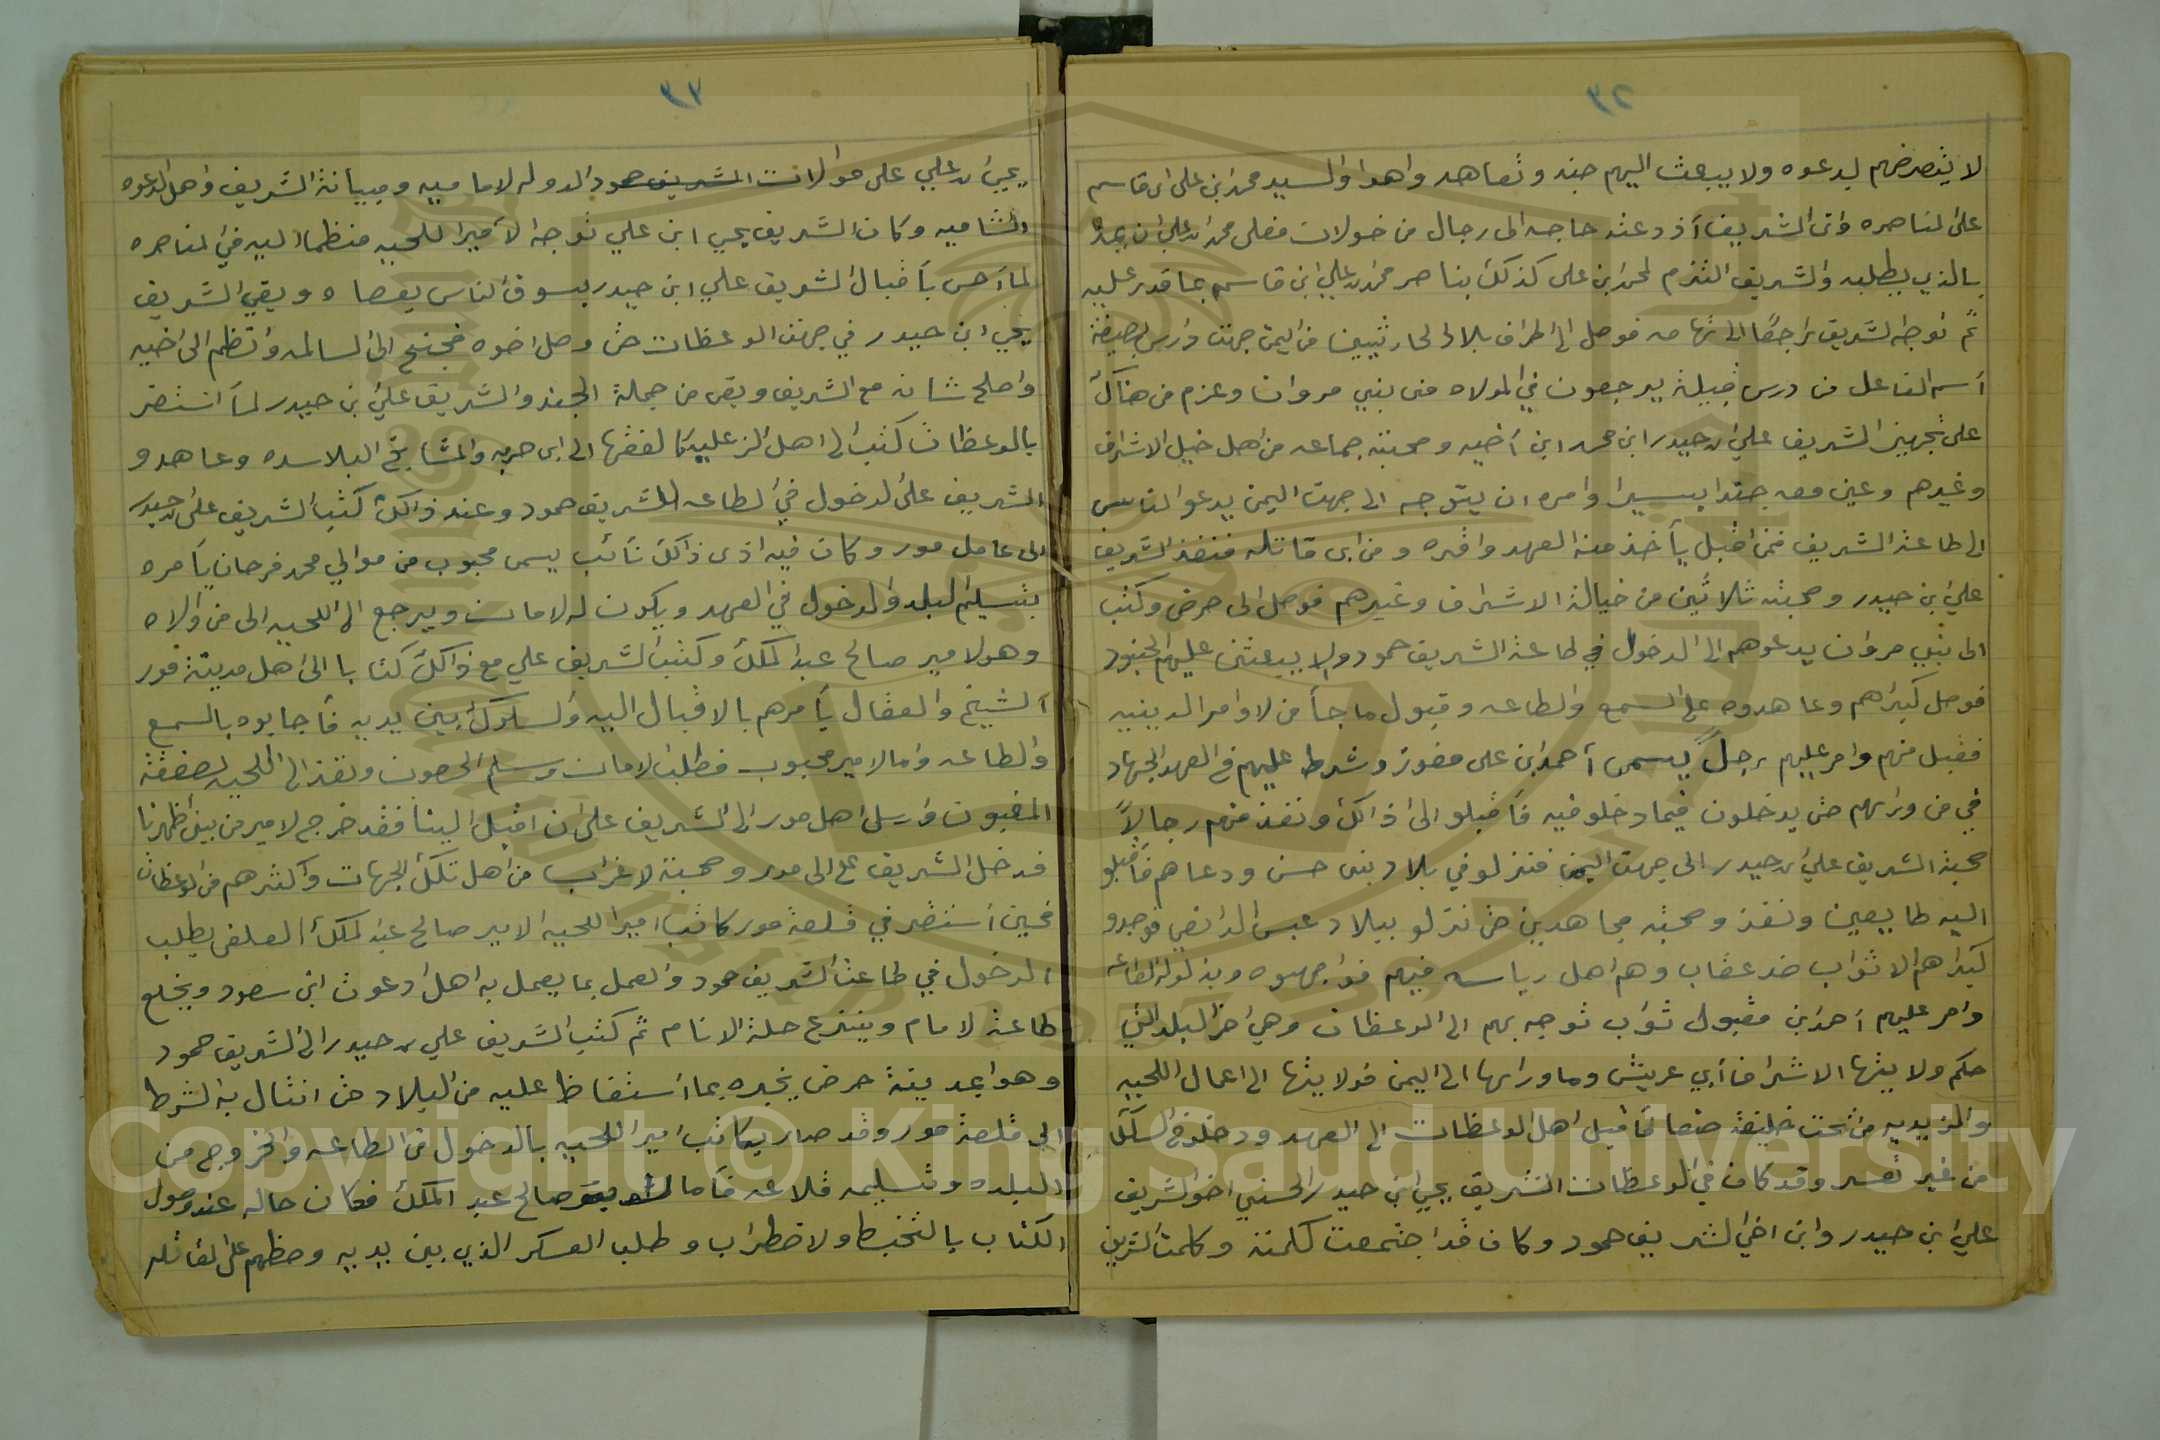 ٣٢
لا يتصرضهم لدعوه ولا يبعث اليهم جند وتعاهد واهدا والسيد محمد ابن علي ابن قاسم
على المناصره وان الشريف آذ دعته حاجه الى رجال من خولان فعلى محمد ابن علي ان يمده
بالذي يطلبه والشريف التزم لمحمد ابن على كذلك يناصر محمد ابن علي ابن قاسم بما قدر عليه
ثم توجه الشريف راجعًا الى تهامه فوصل الى اطراف بلاد الحارثيين من اليمن جهت وارس بصيغة
أسم الفاعل من درس قبيلة يرجعون في الولاه من بني مروان وعزم من هناك
على تجهيز الشريف علي ابن حيدر ابن محمد ابن أخيه وصحبته جماعه من اهل خيل الاشراف
وغيرهم وعين معه جندا يسيرا وامره ان يتوجه الى جهت اليمن يدعو الناس
الى طاعة الشريف فمن اقبل يأخذ منه العهد واقره ومن ابى قاتله فنفذ الشريف
علي بن حيدر وصحبته ثلاثين من خيالة الاشراف وغيرهم فوصل الى حرض وكتب
الى بني مروان يدعوهم الى الدخول في طاعة الشريف حمود ولا يبعثن عليهم الجنود
فوصل كبراهم وعاهدوه على السمع والطاعه وقبول ماجأ من لاوامر الدينيه
فقبل منهم وامر عليهم رجلً يسمى أحمد ابن على مفوز وشرط عليهم في العهد الجهاد
في من ورائهم حتى يدخلون فيما دخلو فيه فأقبلو الى ذالك ونفذ منهم رجالاً
صحبة الشريف علي ابن حيدر الى جهت اليمن فنزلو في بلاد بني حسن ودعاهم فأقبلو
اليه طايعين ونفذ وصحبته مجاهدين حتى نزلو ببلاد عبس الداخله فوجدو
كبراهم الاثواب ضد عقاب وهم اهل رياسه فيهم فواجهوه وبذلو له الطاعه
وامر عليهم احمد ابن مقبول ثواب توجه بهم الى الوعظات وهي اخر البلد التي
حكم ولايتها الاشراف أبي عريش وما ورائها الى اليمن فولايتها الى اعمال اللحيه
والزيديه من تحت خليفة صنعا فأقبل اهل الوعظات الى العهد ودخلو في السلك
من غير تعسر وقد كان في الوعظات الشريف يحيى ابن حيدر الحسني اخو الشريف
علي ابن حيدر وابن اخي الشريف حمود وكان قد اجتمعت كلمته وكلمت الشريف
٣٣
يحيى ابن علي على موالات الدوله لاماميه ومبيانة الشريف واهل الدعوه
الشاميه وكان الشريف يحيى ابن علي توجه الا أمير اللحيه منظما اليه في المناصره
لما أحس بأقبال الشريف علي ابن حيدر يسوق الناس بعصاه وبقي الشريف
يحيى ابن حيدر في جهت الوعظات حتى وصل اخوه فجنح الى السالمه وانتظم الى اخيه
واصلح شانه مع الشريف وبقى من جملة الجند والشريف علي بن حيدر لمأ استقر
بالوعظات كتب الى اهل الزعليه لفقها الى ابى حربه والمشايخ البلاسده وعاهدو
الشريف على الدخول في الطاعه للشريف حمود وعند ذالك كتب الشريف على ابن حيدر
الى عامل مور وكان فيه اذى ذالك نائب يسمى محبوب من موالي محمد فرحان يأمره
بتسليم البلد والدخول في العهد ويكون له لامان ويرجع الا اللحيه الى من والاه
وهو لامير صالح عبد الملك وكتب الشريف علي مع ذالك كتابا الى اهل مدينة مور
الشيخ والعقال يأمرهم بالاقبال اليه والسلوك بين يديه فأجابوه بالسمع
والطاعه واما لامير محبوب فطلب لامان وسلم الحصون ونفذ الى اللحيه بصفقة
المغبون وارسل اهل مور الى الشريف على ان اقبل الينا فقد خرج لامير من بين اظهرنا
فدخل الشريف علي الى مور وصحبته لاغراب من اهل تلك الجهات واكثرهم من الوعظات
فحين أستقر في قلعة مور كاتب امير اللحيه الامير صالح عبد الملك العلفى يطلب
الدخول في طاعة الشريف حمود والعمل بما يعمل به اهل ادعوت ابن سعود ويخلع
طاعة لامام وينتزع حلة الانام ثم كتب الشريف علي ابن حيدر الى الشريف حمود
وهو بمدينة حرض يخبره بما أستفاظ عليه من البلاد حتى انتال به الشرط
الى قلعة مور وقد صار يكاتب امير اللحيه بالدخول في الطاعه والخروج من
البلده وتسليمه قلاعه فأما صالح عبد الملك فكان حاله عند وصول
الكتاب بالتخبط ولاضطراب وطلب العسكر الذي بين يديه وحظهم على القاتله
Copyright © King Saud University